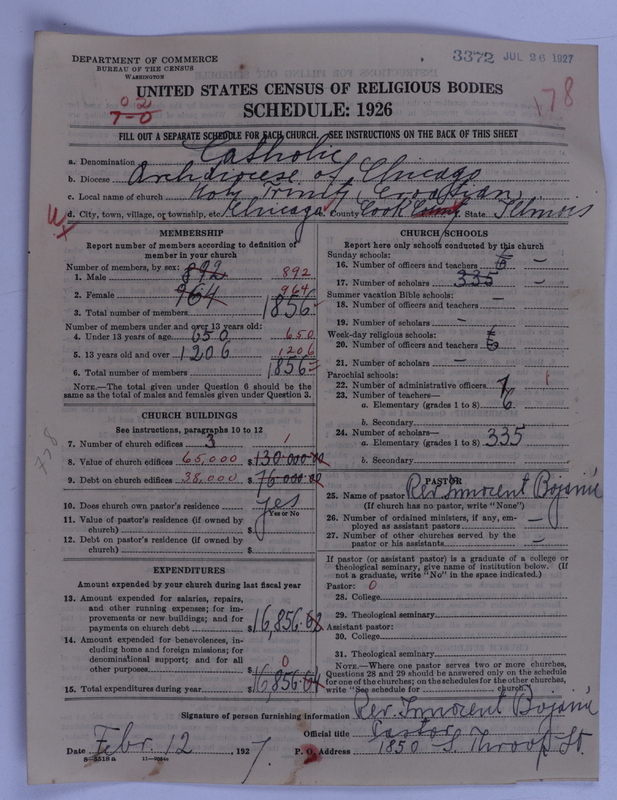 3372 JUL 26 1927
DEPARTMENT OF COMMERCE
BUREAU OF THE CENSUS
WASHINGTON
UNITED STATES CENSUS OF RELIGIOUS BODIES
SCHEDULE: 1926
0 2
7-0
178
FILL OUT A SEPARATE SCHEDULE FOR EACH CHURCH. SEE INSTRUCTIONS ON THE BACK OF THIS SHEET
a. Denomination Catholic
b. Diocese Archdiocese of Chicago
c. Local name of church Holy Trinity (Croatian)
d. City, town, village, or township, etc. Chicago County Cook State Illinois
MEMBERSHIP
Report number of members according to definition of
member in your church
Number of members, by sex:
1. Male 892 892
2. Female 964 964
3. Total number of members 1856
Number of members under and over 13 years old:
4. Under 13 years of age 650 650
5. 13 years old and over 1206 1206
6. Total number of members 1856
NOTE.—The total given under Question 6 should be the
same as the total of males and females given under Question 3.
CHURCH BUILDINGS
See instructions, paragraphs 10 to 12
7. Number of church edifices 3 1
8. Value of church edifices 65,000 $130.000.00
9. Debt on church edifices 38,000 $76.000.00
778
10. Does church own pastor's residence yes
Yes or No
11. Value of pastor's residence (if owned by
church) $
12. Debt on pastor's residence (if owned by
church) $
EXPENDITURES
Amount expended by your church during last fiscal year
13. Amount expended for salaries, repairs,
and other running expenses; for im-
provements or new buildings; and for
payments on church debt $16,856.02
14. Amount expended for benevolences, in-
cluding home and foreign missions; for
denominational support; and for all
other purposes $ 0
15. Total expenditures during year $16,856.04
CHURCH SCHOOLS
Report here only schools conducted by this church
Sunday schools:
16. Number of officers and teachers 6 —
17. Number of scholars 335 —
Summer vacation Bible schools:
18. Number of officers and teachers —
19. Number of scholars —
Week-day religious schools:
20. Number of officers and teachers 6
21. Number of scholars —
Parochial schools:
22. Number of administrative officers 1 1
23. Number of teachers—
a. Elementary (grades 1 to 8) 6
b. Secondary
24. Number of scholars—
a. Elementary (grades 1 to 8) 335
b. Secondary
PASTOR
25. Name of pastor Rev. Innocent Bojanić
(If church has no pastor, write "None")
26. Number of ordained ministers, if any, em-
ployed as assistant pastors —
27. Number of other churches served by the
pastor or his assistants —
If pastor (or assistant pastor) is a graduate of a college or
theological seminary, give name of institution below. (If
not a graduate, write "No" in the space indicated.)
Pastor: 0
28. College
29. Theological seminary
Assistant pastor:
30. College
31. Theological seminary
NOTE.—Where one pastor serves two or more churches,
Questions 28 and 29 should be answered only on the schedule
for one of the churches; on the schedules for the other churches,
write "See schedule for church."
Signature of person furnishing information Rev. Innocent Bojanić
Official title Pastor
Date Febr. 12, 1927. P. O. Address 1850 S. Throop St.
8—5518a 11—9664